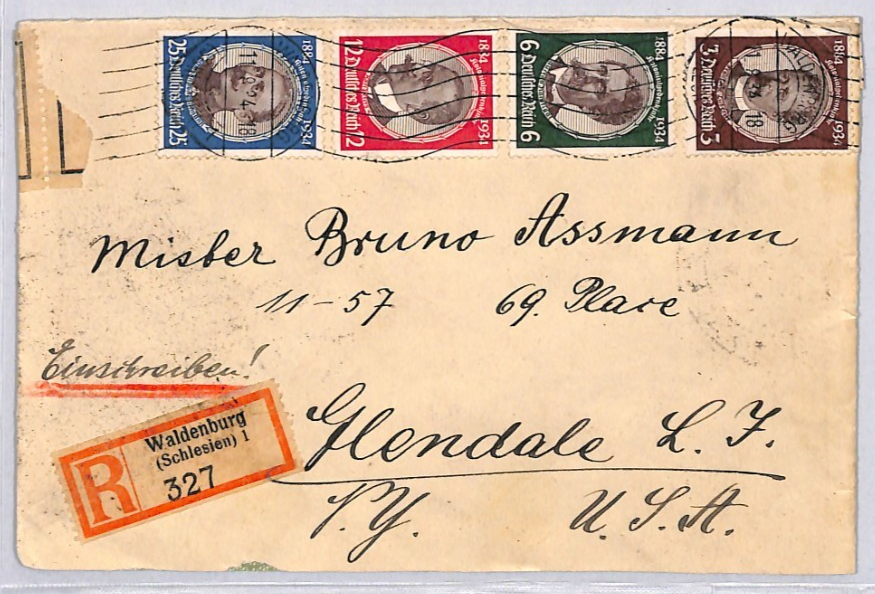 1884 1934
Deutsches Reich
25 25
1834 1934
Deutsches Reich
12 12
1884 1934
Deutsches Reich
6 6
1884 1934
Deutsches Reich
3 3
18
WALDENBURG
18
Mister Bruno Assmann
11-57 69. Place
Einschreiben!
Glendale L. I.
N.Y. U.S.A.
R
Waldenburg
(Schlesien) 1
327